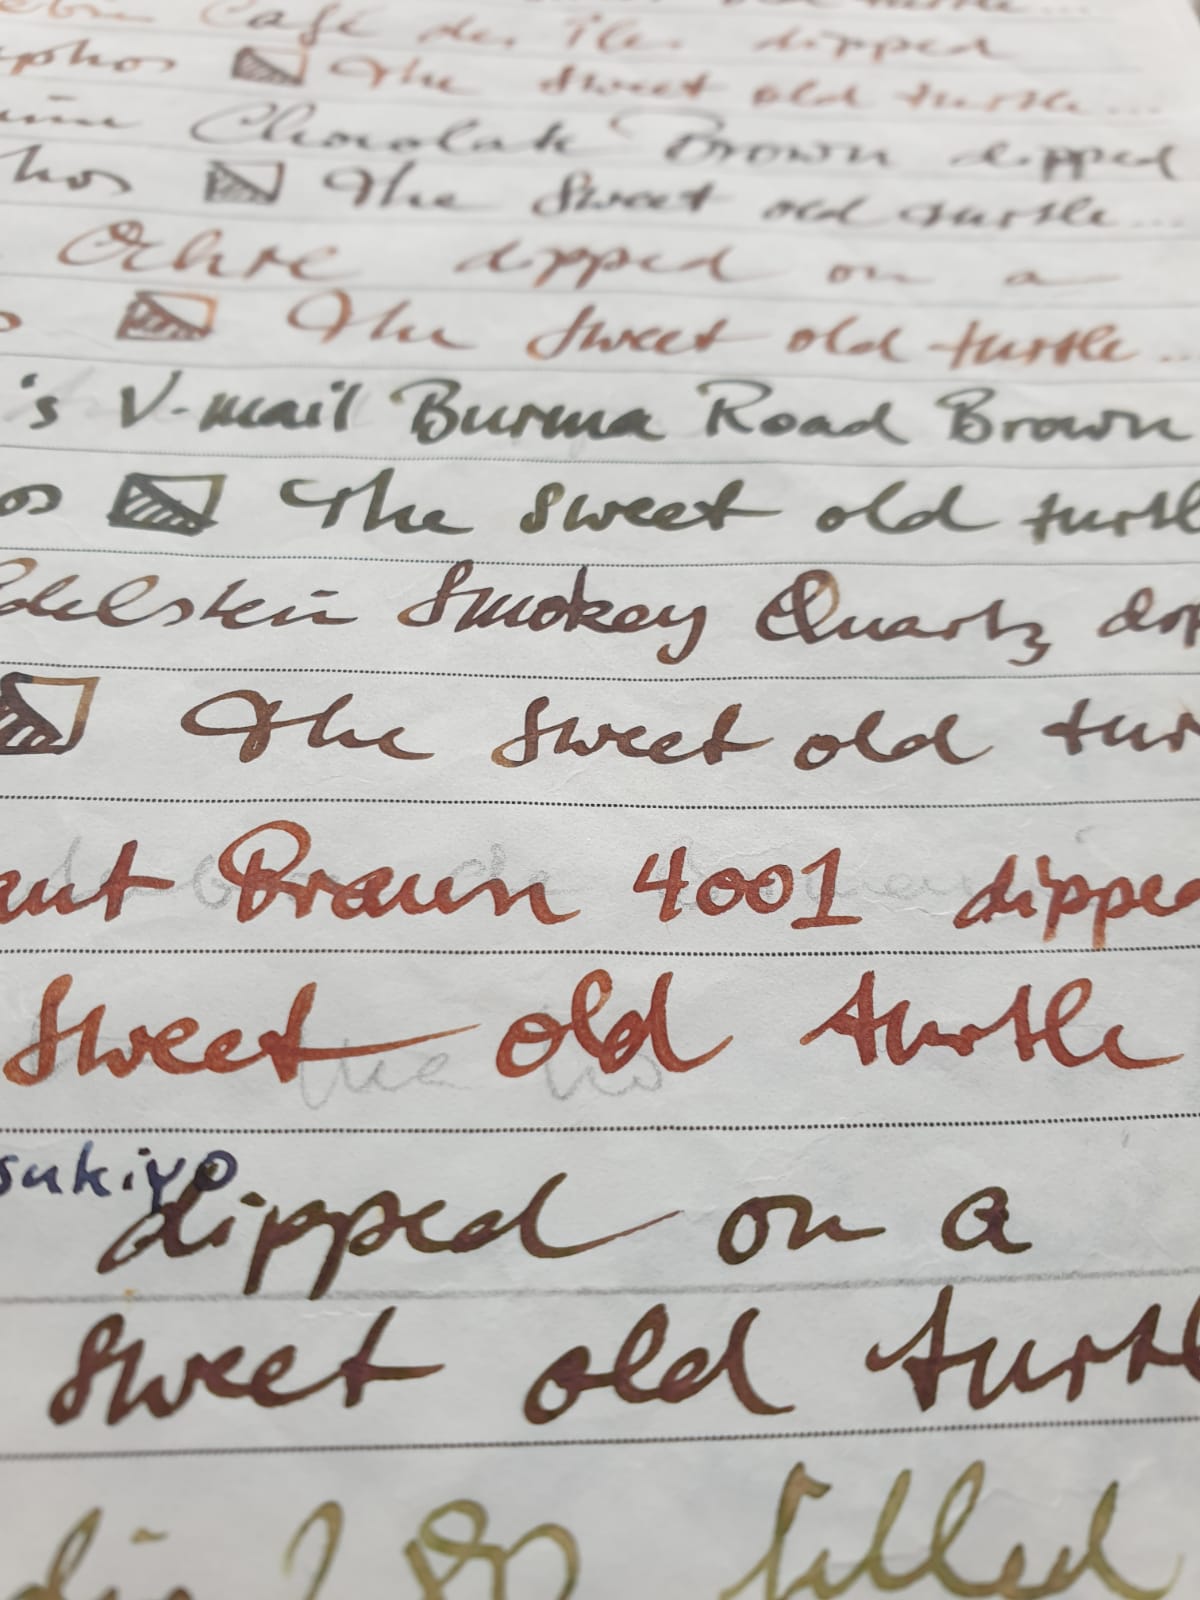 Café des Iles dipped
The sweet old turtle...
Chocolate Brown dipped
The sweet old turtle...
Ochre dipped on a
The sweet old turtle..
's V-mail Burma Road Brown
os The sweet old turtl
Edelstein Smokey Quartz dip
The sweet old tur
ant Braun 4001 dipped
sweet old turtle
sukiyo
dipped on a
sweet old turtl
filled